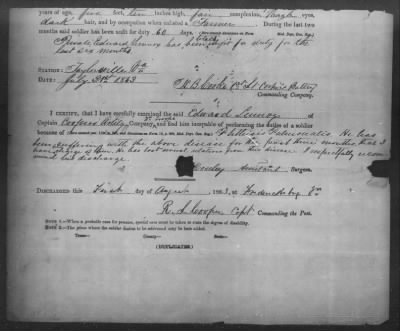 years of age, five feet, ten inches high, fair complexion, eyes,
dark hair, and by occupation when enlisted a Farmer. During the last two
months said soldier has been unfit for duty 60 days.
Private Edward has been unfit for duty for the
last six months
STATION: Va
DATE: July 31st 1863
W. B. Cooke 1st Lt Coopers Battery
Commanding Company.
I CERTIFY, that I have carefully examined the said Edward
Captain Coopers Company, and find him incapable of performing the duties of a soldier
because of Phthisis Pulmonalis. He has
been suffering with the above disease for the past three months that I
have charge of him. He has lost most relations from this disease. I respectfully recom
mend his discharge.
Assistant Surgeon.
DISCHARGED this First day of August 1863, at Fredericksburg Va
R. L. Cooper Capt Commanding the Post.
NOTE 1.—When a probable case for pension, special care must be taken to state the degree of disability.
NOTE 2.—The place where the soldier desires to be addressed may be here added.
Town— County— State—
(DUPLICATES.)